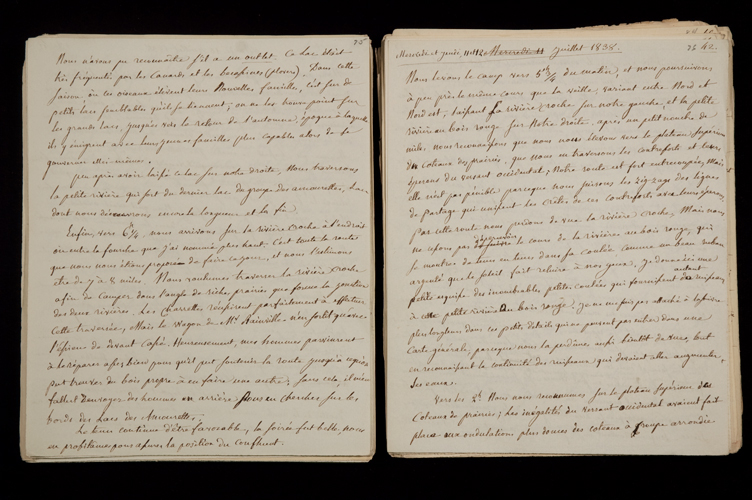 35
Nous n'avons pu reconnaître s'il a un outlet. Ce Lac était
très fréquenté par les Canards et les becafines (plover). Dans cette
saison où ces oiseaux élèvent leurs Nouvelles familles, c'est sur de
petits lacs semblables qu'ils se tiennent; on ne les trouve point sur
les grands lacs, jusques vers le retour de l'automne, époque à laquelle
ils y émigrent avec leurs jeunes familles plus capables alors de se
gouverner elles-mêmes.
peu après avoir laissé ce lac sur notre droite, Nous traversons
la petite rivière qui sort du dernier lac du groupe des amourettes, Lac
dont nous découvrons encore la longueur et la fin.
Enfin, vers 6h ¼ nous arrivons sur la rivière Croche à l'endroit
où entre la fourche que j'ai nommée plus haut. C'est toute la route
que nous nous étions proposé de faire ce jour, et nous l'estimons
être de 7 à 8 miles. Nous voulumes traverser la rivière Croche
afin de camper dans l'angle de riche prairie que forme la jonction
des deux rivières. Les Charrettes réussirent parfaitement à effectuer
Cette traversée, Mais le Wagon de Mr Rainville n'en sortit qu'avec
l'épieu de devant Cassé. Heureusement, nos hommes parvinrent
à le réparer assez bien pour qu'il put soutenir la route jusqu'à ce qu'on
put trouver du bois propre à en faire une autre; sans cela, il nous
fallait envoyer des hommes en arrière pour en chercher sur les
bords des Lacs des Amourettes.
Le tems continue d'être favorable, la soirée fut belle, nous
en profitâmes pour assurer la position du Confluent.
Mercredi et jeudi, 11 et 12 Juillet 1838.
42
Nous levons le camp vers 5h ¾ du matin, et nous poursuivons
à peu près le même cours que la veille, variant entre Nord et
Nord est; laissant la rivière Croche sur notre gauche, et la petite
rivière au bois rouge sur Notre droite, après un petit nombre de
miles nous reconnaissons que nous nous élevons vers le plateau supérieur
du Coteau des prairies, que nous en traversons les contreforts et les
éperons du versant occidental; Notre route est fort entrecoupée, Mais
elle n'est pas pénible parceque nous suivons les zig-zags des lignes
de partage qui unissent les crêtes de ces contreforts avec leurs éperons.
Par cette route nous perdons de vue la rivière Croche, Mais nous
ne cessons pas d'apercevoir le cours de la rivière au bois rouge, qui
se montre de tems en tems dans sa coulée comme un beau ruban
argenté que le soleil fait reluire à nos yeux. Je donne ici une
petite esquisse des innombrables petites coulées qui fournissent autant de ruisseaux
à cette petite rivière du bois rouge; je ne me suis pas attaché à la suivre
plus longtems dans ces petits détails qui ne pouvaient pas entrer dans une
Carte générale; parceque nous la perdimes aussi bientôt de vue, tout
en reconnaissant la continuité des ruisseaux qui devaient aller augmenter
ses eaux.
Vers les 2h Nous nous reconnumes sur le plateau supérieur du
Coteau de prairies; Les inégalités du versant occidental avaient fait
place aux ondulations plus douces des coteaux à croupe arrondie